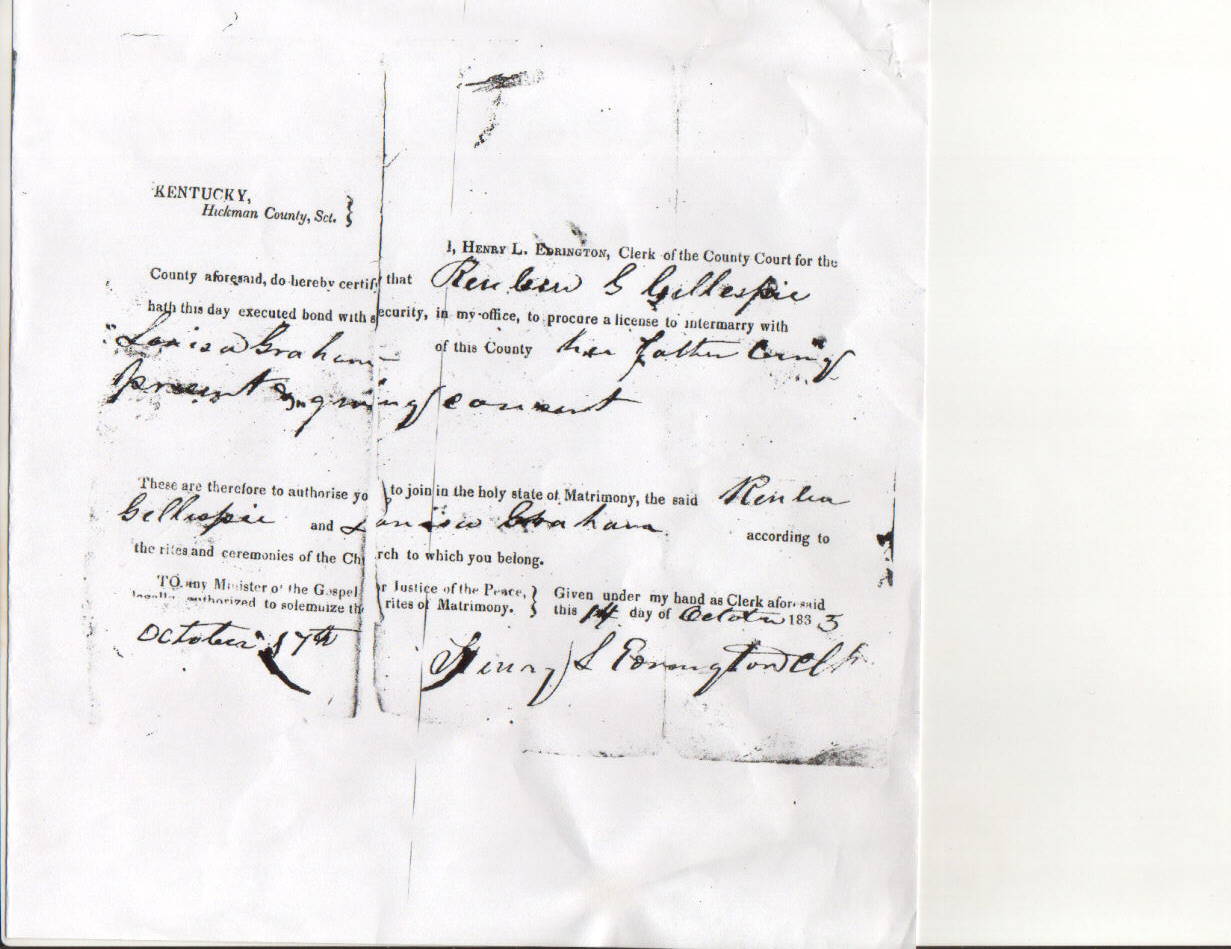 KENTUCKY,
Hickman County, Sct. }
I, HENRY L. EDRINGTON, Clerk of the County Court for the
County aforesaid, do hereby certify that Reuben G Gillespie
hath this day executed bond with security, in my office, to procure a license to intermarry with
Louisa Graham of this County her father being
present & giving consent
These are therefore to authorise yo to join in the holy state of Matrimony, the said Reuben
Gillespie and Louisa Graham according to
the rites and ceremonies of the Church to which you belong.
TO any Minister of the Gospel or Justice of the Peace, } Given under my hand as Clerk aforesaid
legally authorized to solemnize the rites of Matrimony. } this 14 day of October 1833
October 17th Henry L Edrington Clk